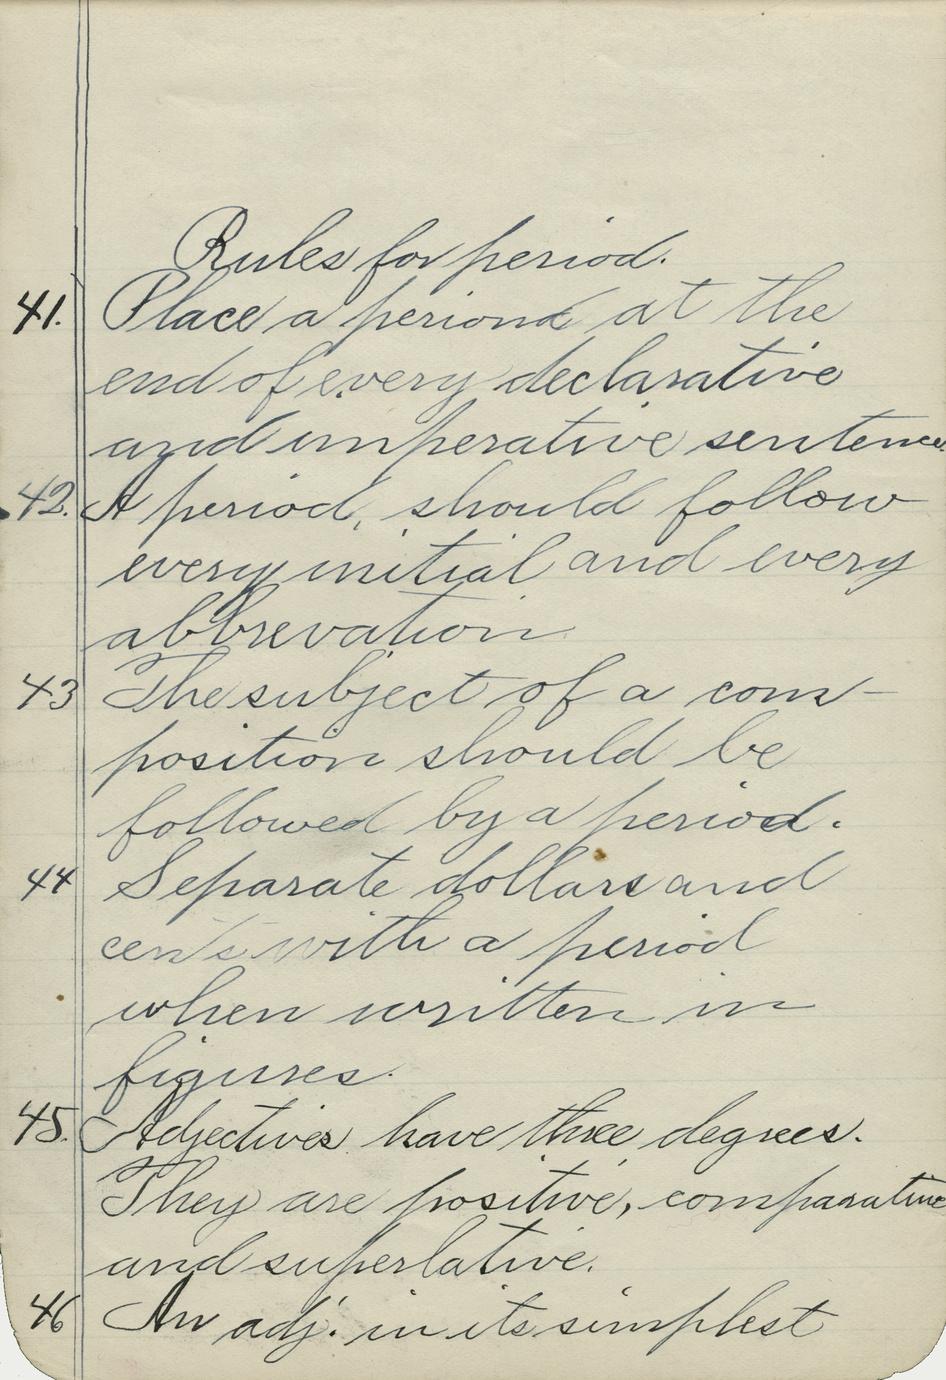 Rules for period.
41. Place a period at the
end of every declarative
and imperative sentence.
42. A period, should follow
every initial and every
abbrevation.
43 The subject of a com-
position should be
followed by a period.
44 Separate dollars and
cents with a period
when written in
figures.
45. Adjectives have three degrees.
They are positive, comparative
and superlative.
46 An adj. in its simplest